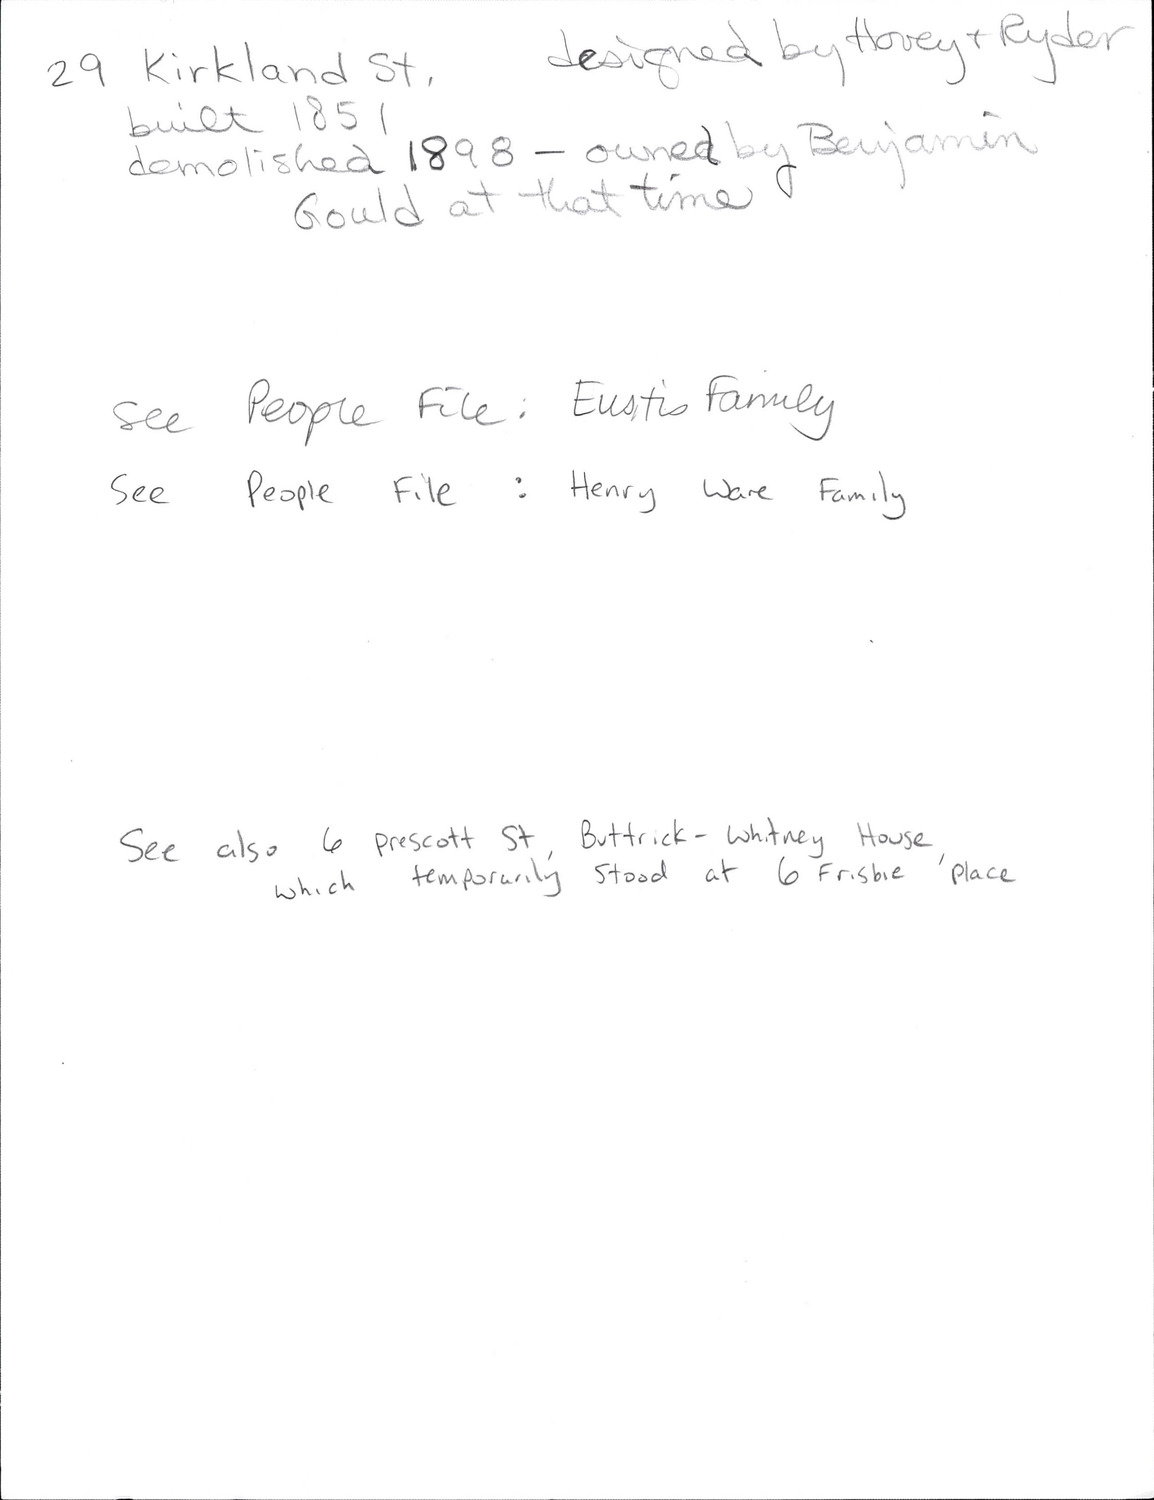 29 Kirkland St. designed by Hovey + Ryder
built 1851
demolished 1898 – owned by Benjamin
Gould at that time
See People File: Eustis Family
See People File : Henry Ware Family
See also 6 prescott St, Buttrick-Whitney House,
which temporarily stood at 6 Frisbie place